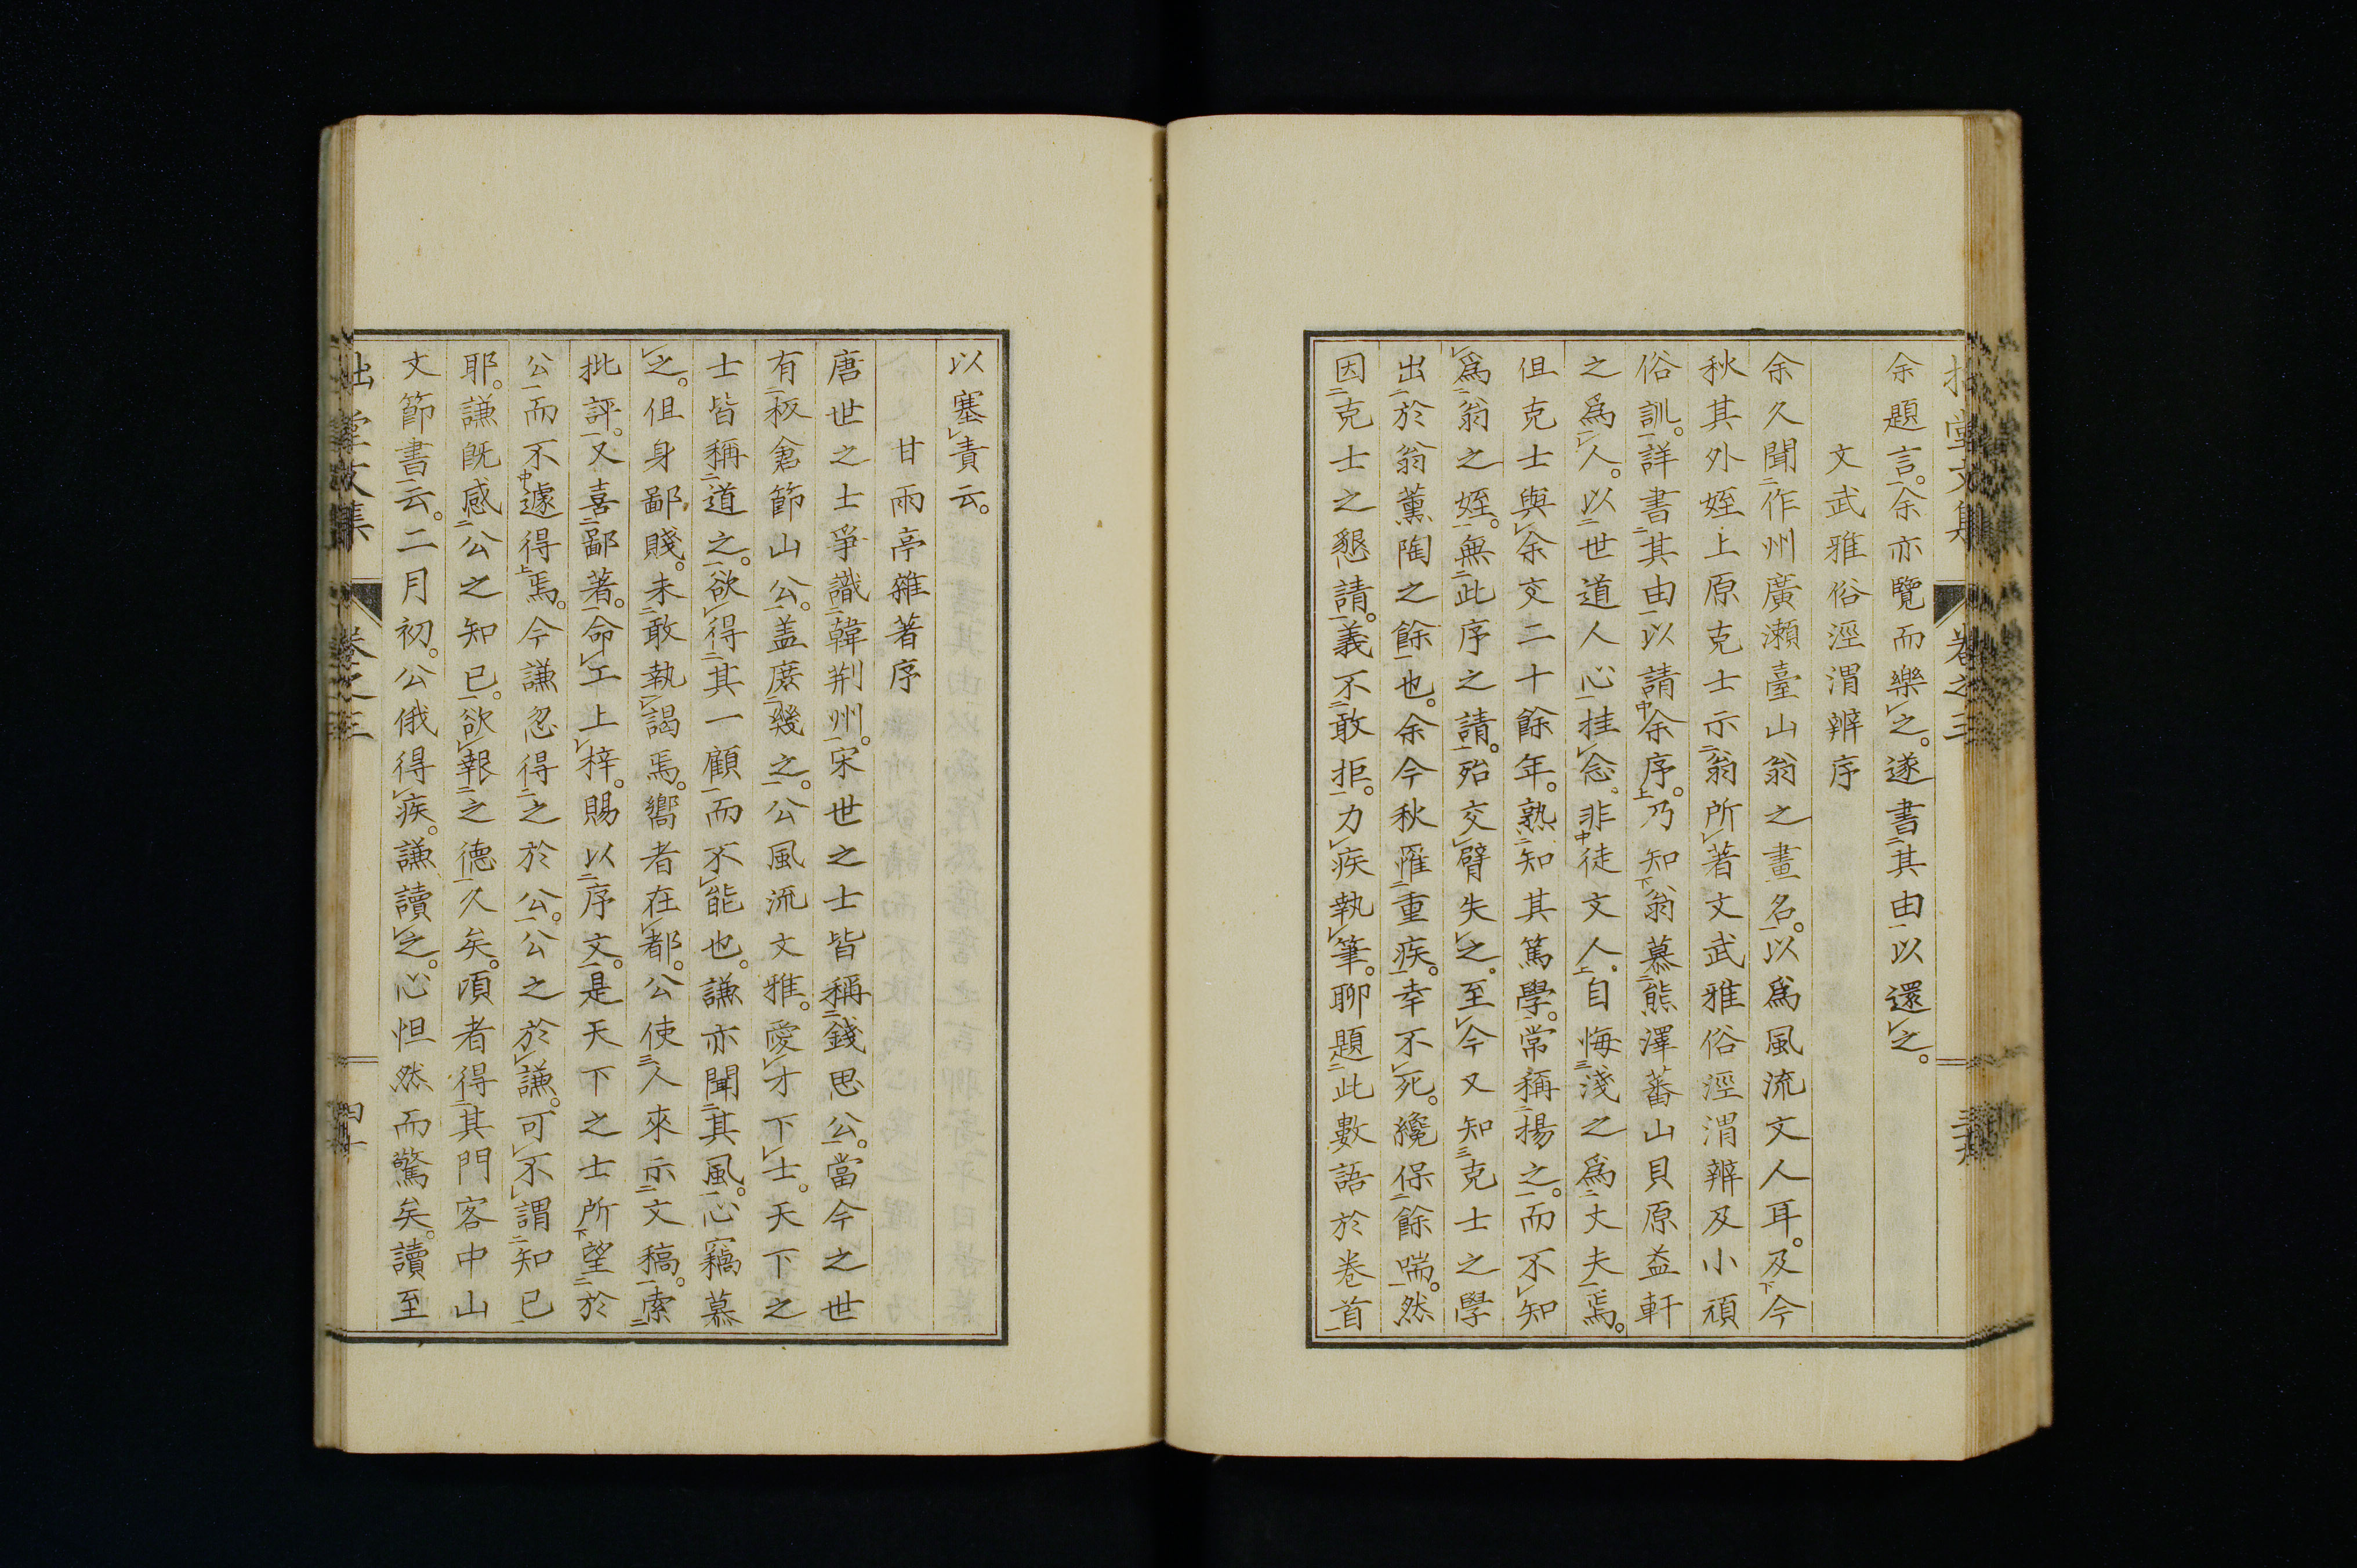 余題言。余亦覽而樂之。遂書其由以還之。
文武雅俗涇渭辨序
余久聞作州廣瀨臺山翁之畫名。以爲風流文人耳。及今
秋其外姪上原克士示翁所著文武雅俗涇渭辨及小頑
俗訓。詳書其由以請余序。乃知翁慕熊澤蕃山貝原益軒
之爲人。以世道人心挂念。非徒文人。自悔淺之爲丈夫焉。
但克士與余交二十餘年。熟知其篤學。常稱揚之。而不知
爲翁之姪。無此序之請。殆交臂失之。至今又知克士之學
出於翁薰陶之餘也。余今秋罹重疾。幸不死。纔保餘喘。然
因克士之懇請。義不敢拒。力疾執筆。聊題此數語於卷首
以塞責云。
甘雨亭雜著序
唐世之士爭識韓荆州。宋世之士皆稱錢思公。當今之世
有板倉節山公。盖庶幾之。公風流文雅。愛才下士。天下之
士皆稱道之。欲得其一顧而不能也。謙亦聞其風。心竊慕
之。但身鄙賤。未敢執謁焉。嚮者在都。公使人來示文稿。索
批評。又喜鄙著。命工上梓。賜以序文。是天下之士所望於
公而不遽得焉。今謙忽得之於公。公之於謙。可不謂知已
耶。謙旣感公之知已。欲報之德久矣。頃者得其門客中山
文節書云。二月初。公俄得疾。謙讀之。心怛然而驚矣。讀至
拙堂文集 卷之三 四十